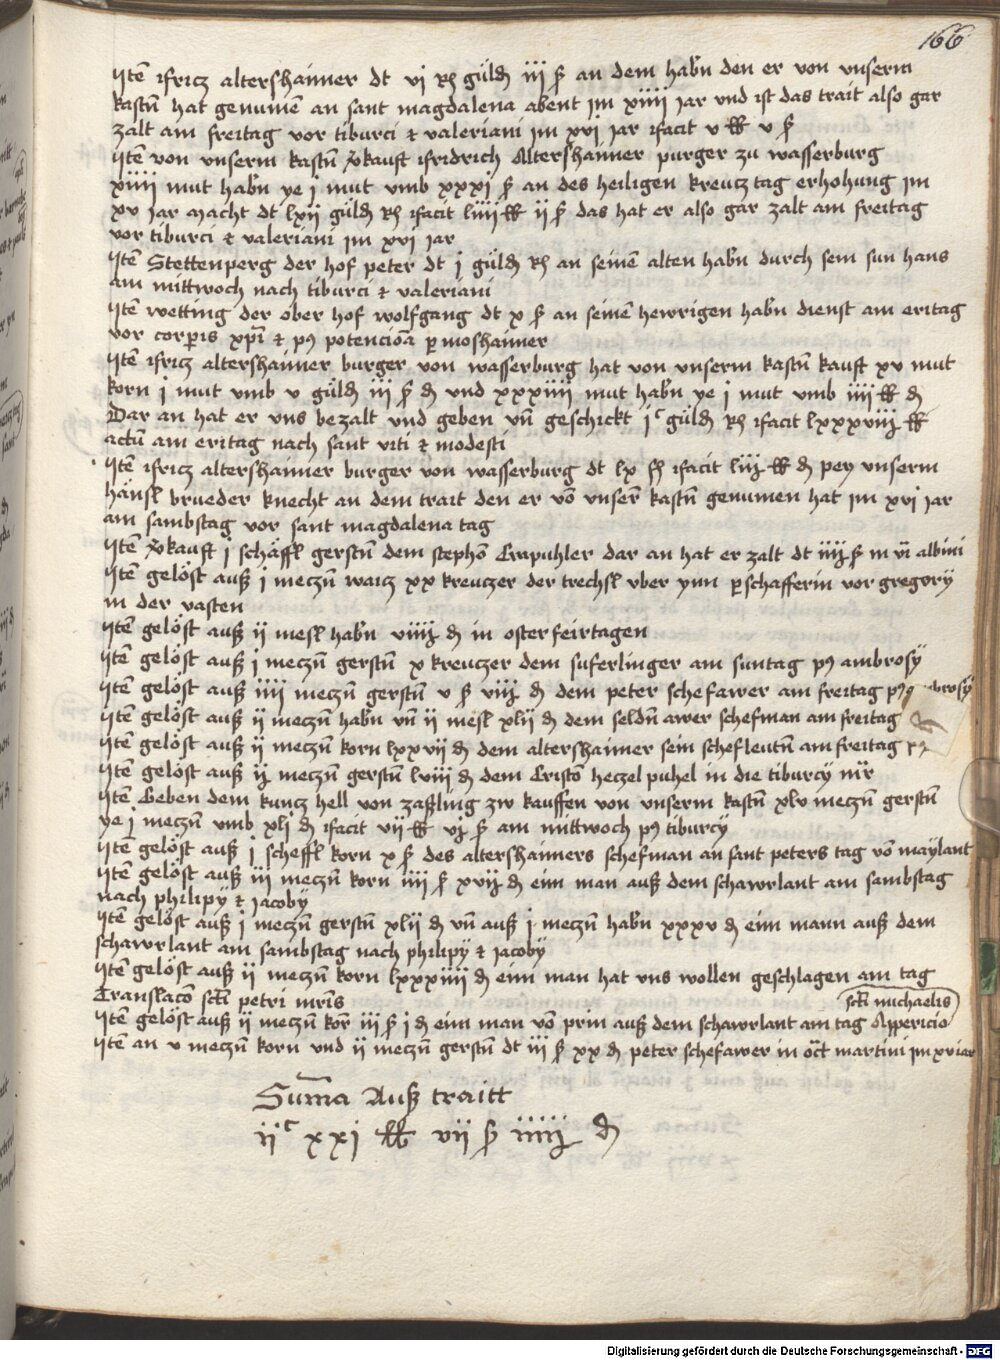 166
Itē ffricz altershaimer dt vj rh güldn iij ß an dem habn den er von vnserm
kastn hat genumē an sant magdalena abent im xiiij jar vnd ist das trait also gar
zalt am freitag vor tiburci & valeriani im xvj jar ffacit v lb v ß
Itē von vnserm kastn vkauft ffridrich Altershaimer purger zu wasserburg
xiiij mut habn ye j mut vmb xxxj ß an des heiligen kreucz tag erhohung im
xv jar macht dt lxij güldn rh ffacit liiij lb ij ß das hat er also gar zalt am freitag
vor tiburci & valeriani im xvj jar
Itē Stettenperg der hof peter dt j güldn rh an seinē alten habn durch sein sun hans
am mittwoch nach tiburci & valeriani
Itē wetting der ober hof wolfgang dt x ß an seinē hewrigen habn dienst am eritag
vor corpris xpi & p9 potenciōā p moshaimer
Itē ffricz altershaimer burger von wasserburg hat von vnserm kastn kauft xv mut
korn j mut vmb v güldn iij ß dn vnd xxxiiij mut habn ye j mut vmb iiij lb dn
Dar an hat er vns bezalt vnd geben vn geschickt j c güldn rh ffacit lxxxviij lb
actū am eritag nach sant viti & modesti
Itē ffricz altershaimer burger von wasserburg dt lx fl ffacit liij lb dn pey vnserm
hänsl brueder knecht an dem trait den er vō vnser kastn genumen hat im xvj jar
am sambstag vor sant magdalena tag
Itē vkauft j schäffl gerstn dem stephō Crapuhler dar an hat er zalt dt iiij ß in vi albini
Itē gelöst auß j meczn waicz xx kreuczer der trechsl vber ynn p schafferin vor gregory
in der vasten
Itē gelöst auß ij mesl habn viiij dn in osterfeirtagen
Itē gelöst auß j meczn gerstn x kreuczer dem suferlinger am suntag p9 ambrosy
Itē gelöst auß iiij meczn gerstn v ß viij dn dem peter schefawer am freitag p9 ambrosy
Itē gelöst auß ij meczn habn vn ij mesl xlij dn dem seldn awer schefman am freitag
Itē gelöst auß ij meczn korn lxxvij dn dem altershaimer sein schefleutn am freitag
Itē gelöst auß ij meczn gerstn lviij dn dem Cristō heczel puhel in die tiburcy mr
Itē Geben dem kuncz hell von zaßling zw kauffen von vnserm kastn xlv meczn gerstn
ye j meczn vmb xlj dn ffacit vij lb vj ß am mittwoch p9 tiburcy
Itē gelöst auß j scheffl korn x ß des altershaimers schefman an sant peters tag vō maylant
Itē gelöst auß iij meczn korn iiij ß xvij dn ein man auß dem schawrlant am sambstag
nach philipy & jacoby
Itē gelöst auß j meczn gerstn xlij dn vn auß j meczn habn xxxv dn ein mann auß dem
schawrlant am sambstag nach philipy & jacoby
Itē gelöst auß ij meczn korn lxxxiiij dn ein man hat vns wollen geschlagen am tag
Translacō scti petri mris
Itē gelöst auß ij meczn kor iij ß j dn ein man vō prin auß dem schawrlant am tag Appericio
scti michaelis
Itē an v meczn korn vnd ij meczn gerstn dt iij ß xx dn peter schefawer in oct martini im xvi iar
Suma Auß traitt
ij c xxj lb vij ß iiiij dn
Digitalisierung gefördert durch die Deutsche Forschungsgemeinschaft - DFG